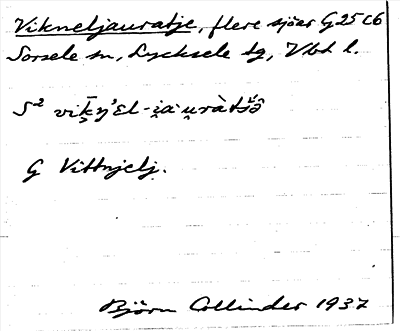 Vikneljauratje, flere sjöar G25 c6
Sorsele sn, Lycksele tg, Vbt l.
S² vik̄ŋ'ɛl-i̯a·u̯ràt́šɔ̂
G Vittnjelj.
Björn Collinder 1937